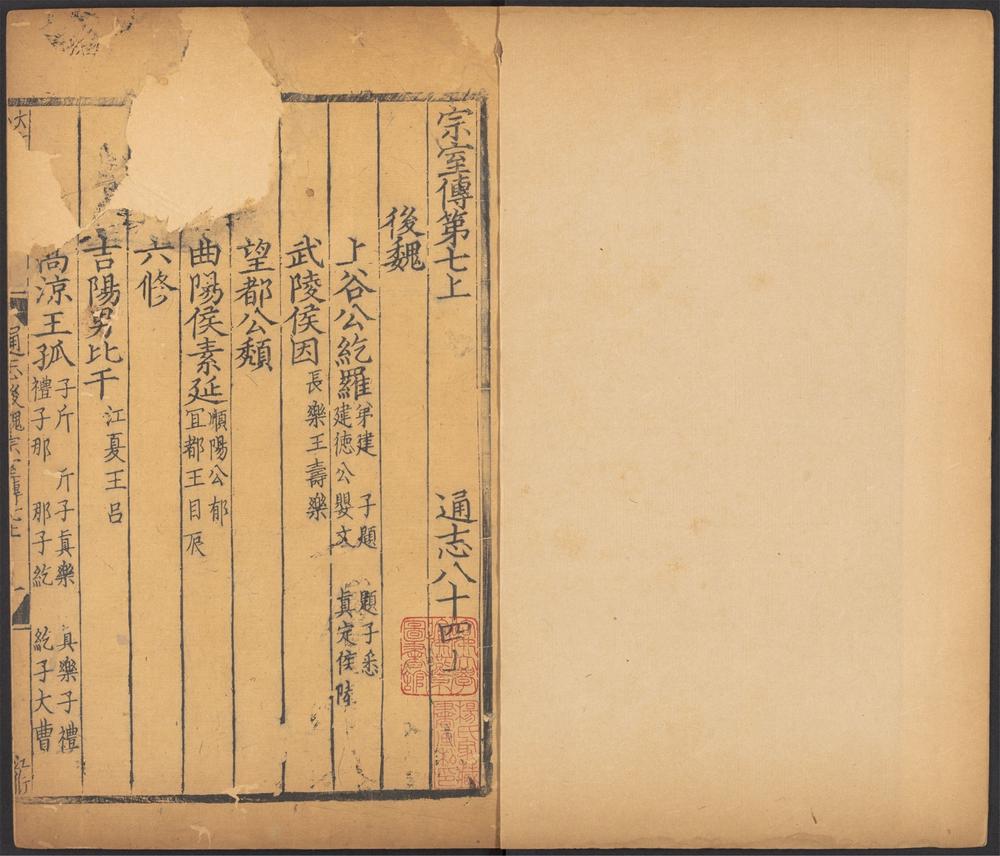 宗室傳第七上 通志八十四上
後魏
上谷公紇羅 弟建 子題 題子悉
建德公嬰文 真定侯陸
武陵侯因 長樂王壽樂
望都公頹
曲陽侯素延 順陽公郁
宜都王目辰
六修
吉陽男比干 江夏王呂
高涼王孤 子斤 斤子真樂 真樂子禮
禮子那 那子紇 紇子大曹
通志後魏宗室傳七上